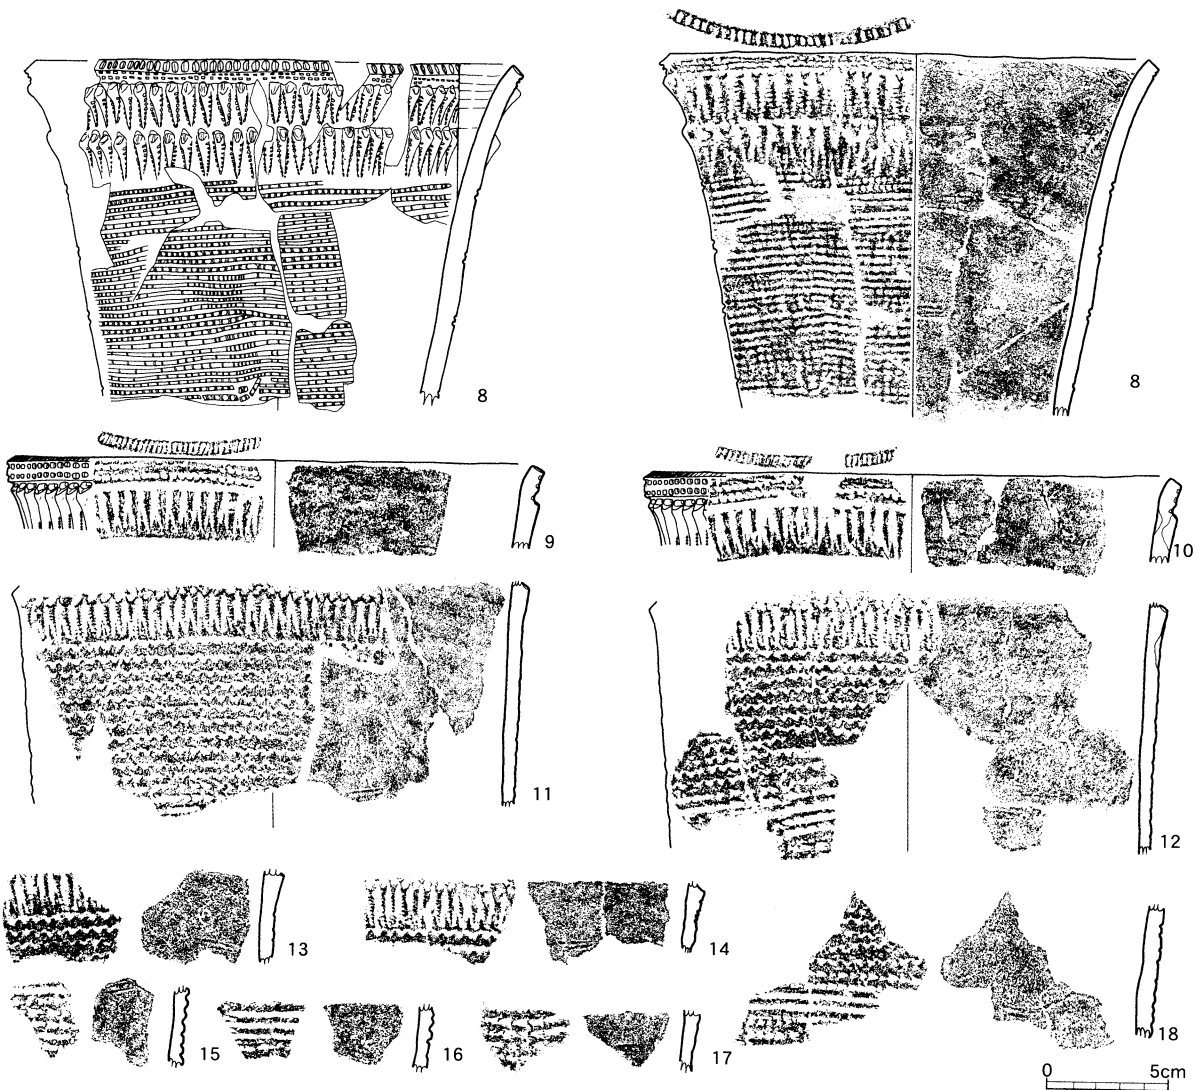 8
8
9
10
11
12
13
14
15
16
17
18
0 5cm